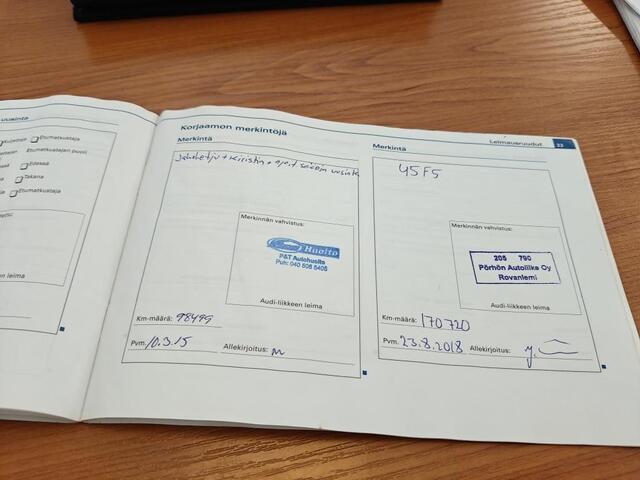 uusinta
Etumatkustaja
Etumatkustajan puoli
Edessä
Takana
Etumatkustaja
leima
Korjaamon merkintöjä
Merkintä
Jakohihna + kiristin +
Merkinnän vahvistus:
Huolto
P&T Autohuolto
Puh: 040 505 5405
Audi-liikkeen leima
Km-määrä: 98499
Pvm. 10.3.15 Allekirjoitus:
Leimausruudut 23
Merkintä
45F5
Merkinnän vahvistus:
205 790
Pörhön Autoliike Oy
Rovaniemi
Audi-liikkeen leima
Km-määrä: 170720
Pvm. 23.8.2018 Allekirjoitus: